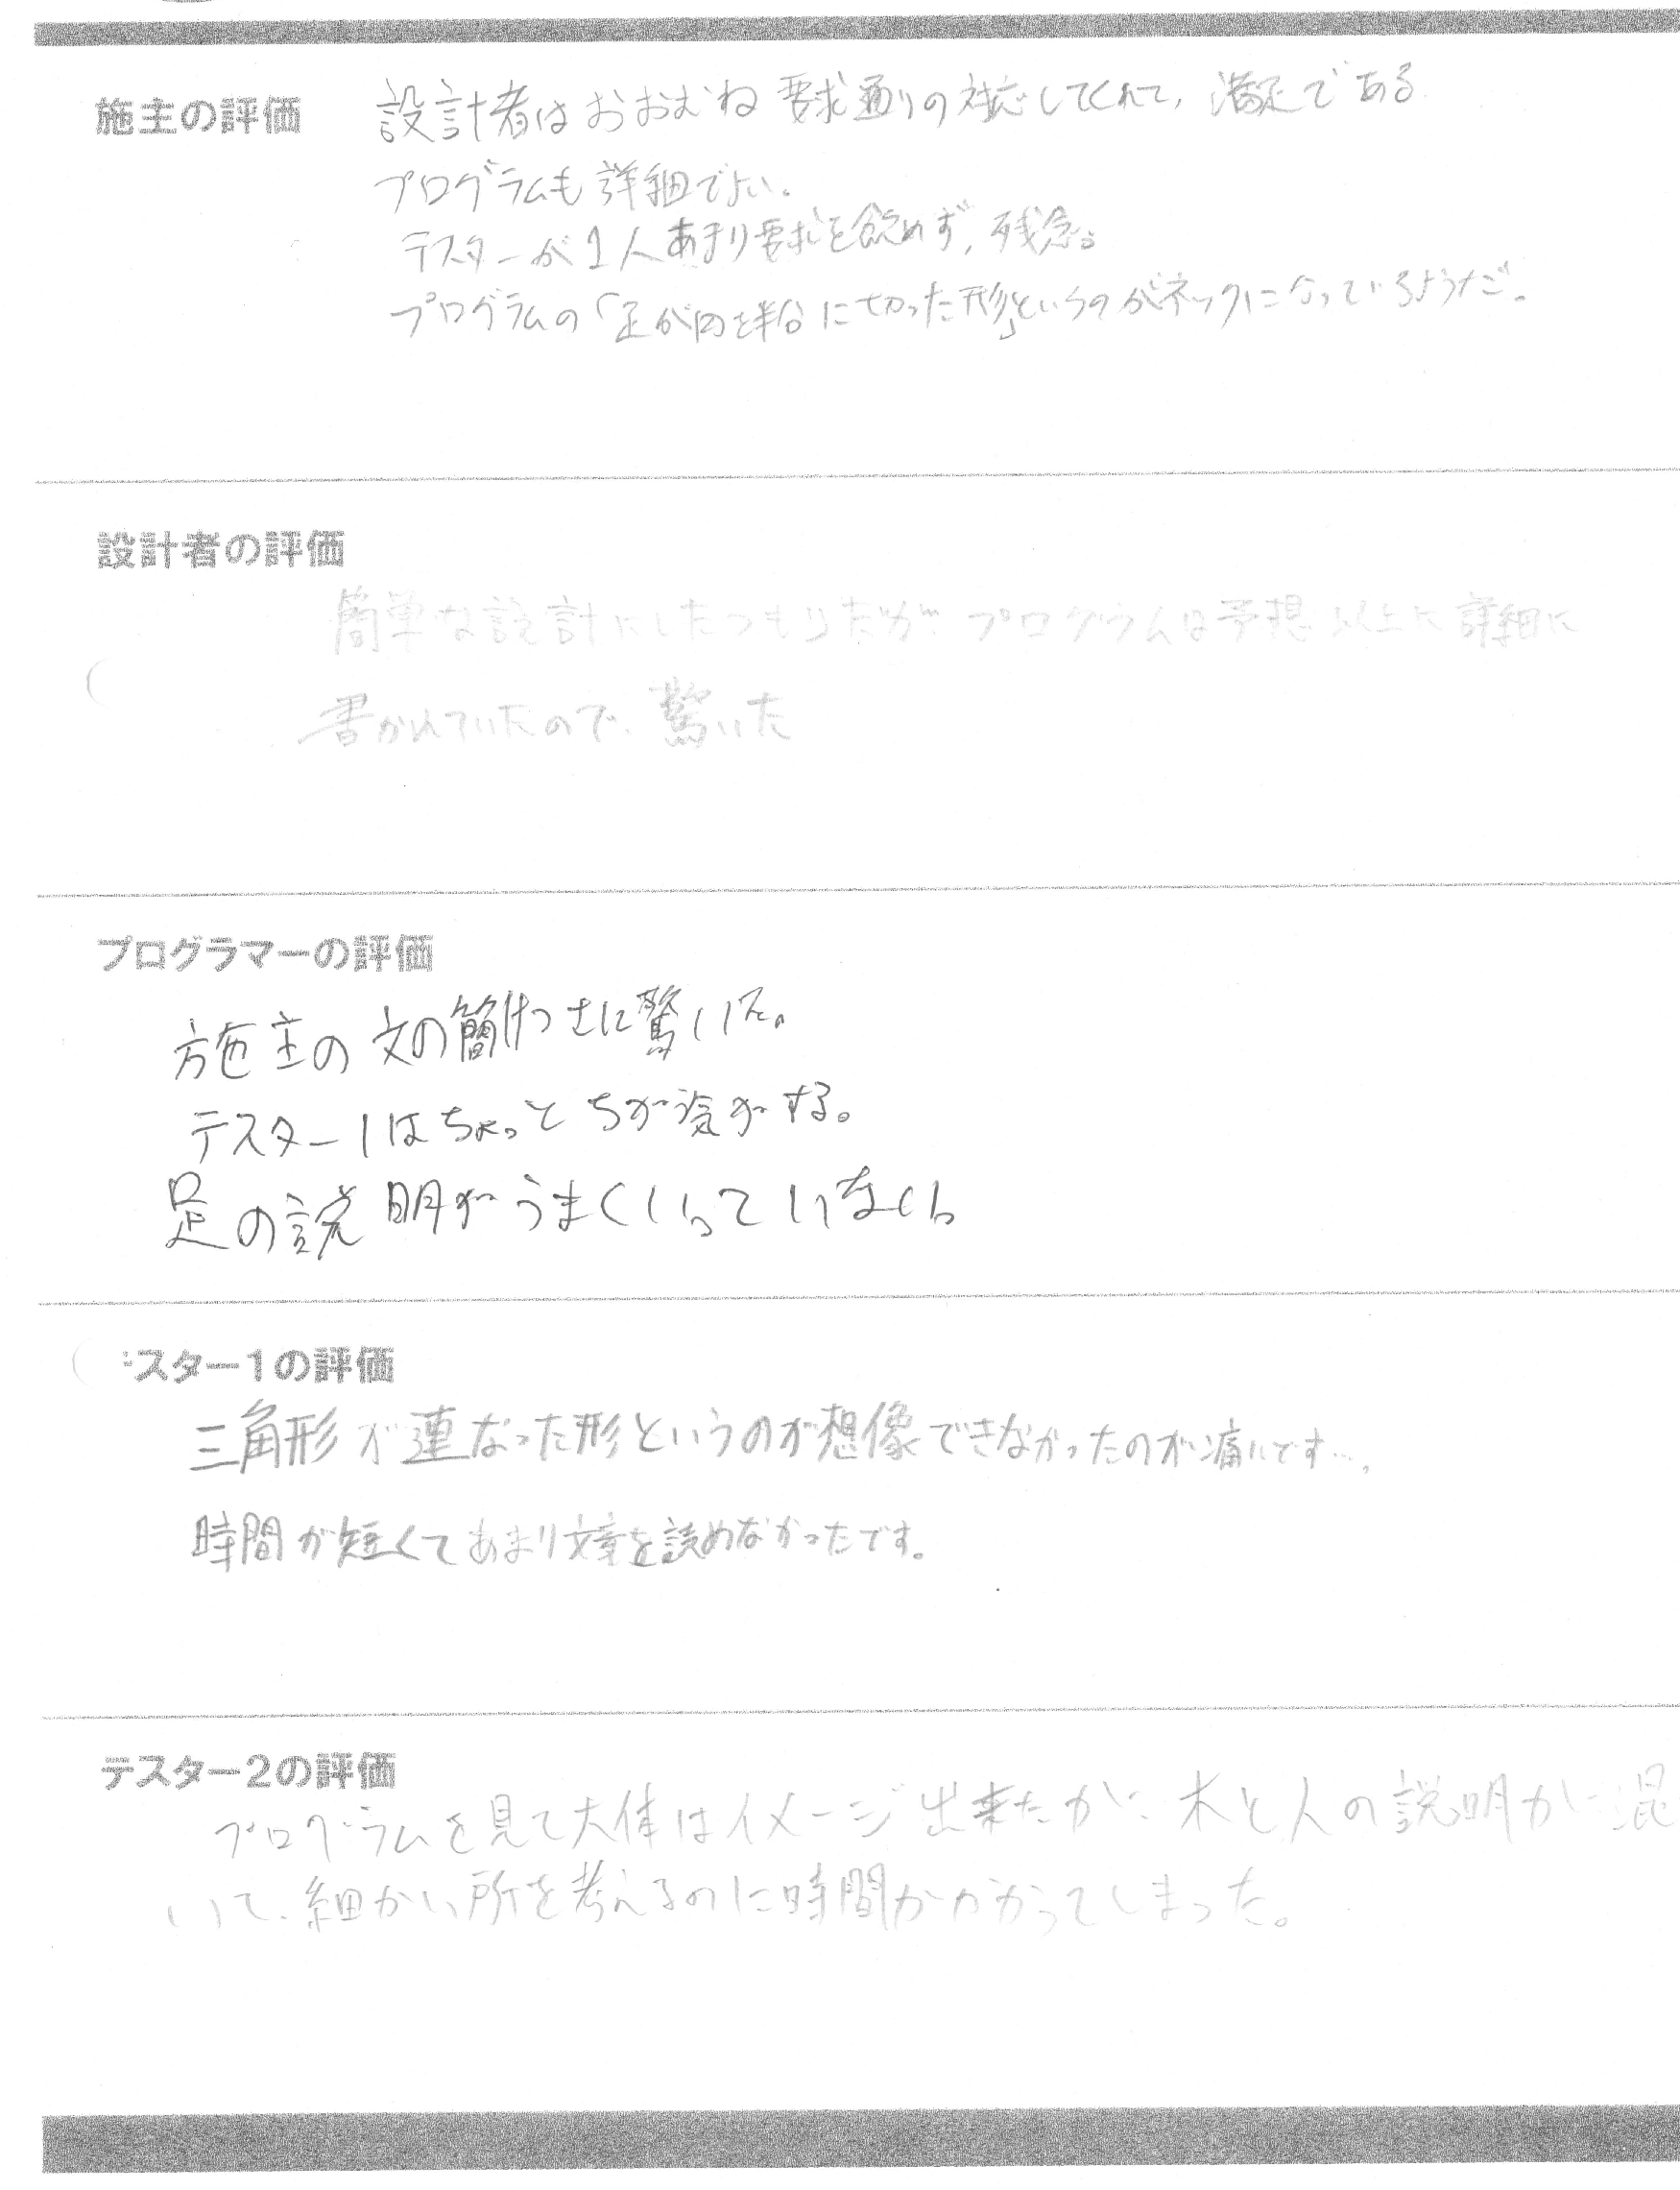 施主の評価
設計者はおおむね要求通りの対応してくれて、満足である
プログラムも詳細でよい。
テスターが1人あまり要求を飲めず、残念。
プログラムの「足が円を半分に切った形」というのがネックになっているようだ。
設計者の評価
簡単な設計にしたつもりだが、プログラムは予想以上に詳細に
書かれていたので、驚いた
プログラマーの評価
施主の文の簡けつさに驚いた。
テスター1はちょっとちが気がする。
足の説明がうまくいっていない。
スター1の評価
三角形が連なった形というのが想像できなかったのが痛いです…。
時間が短くてあまり文章を読めなかったです。
テスター2の評価
プログラムを見て大体はイメージ出来たが、木と人の説明が混
いて、細かい所を考えるのに時間がかかってしまった。